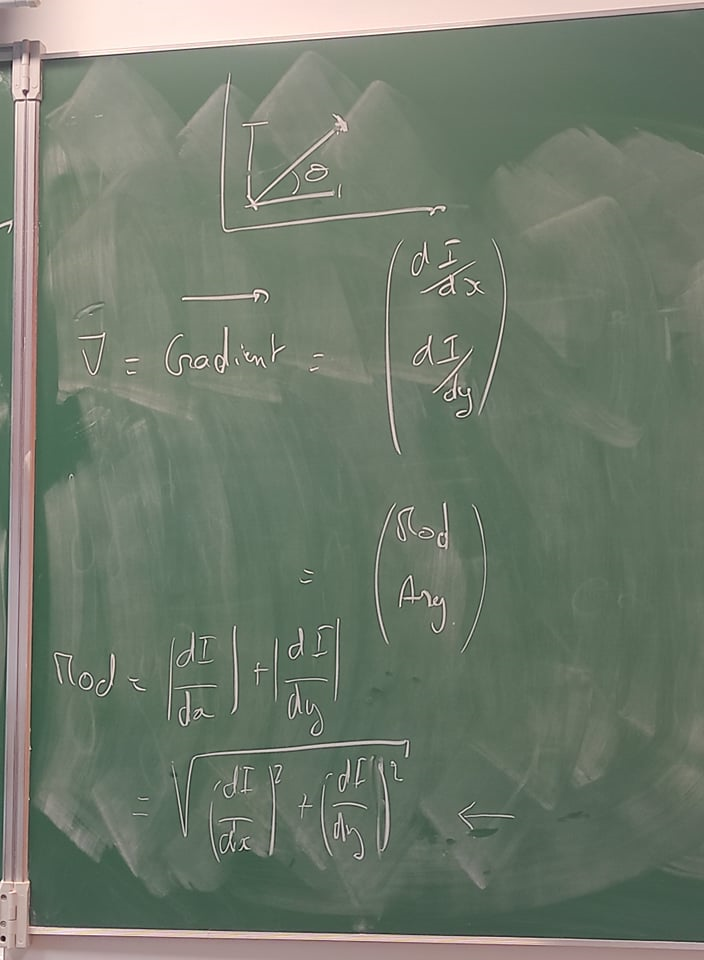 θ
∇ = Gradient = ( dI/dx
dI/dy )
= ( Mod
Arg. )
Mod = |dI/dx| + |dI/dy|
= √( (dI/dx)² + (dI/dy)² ) ←